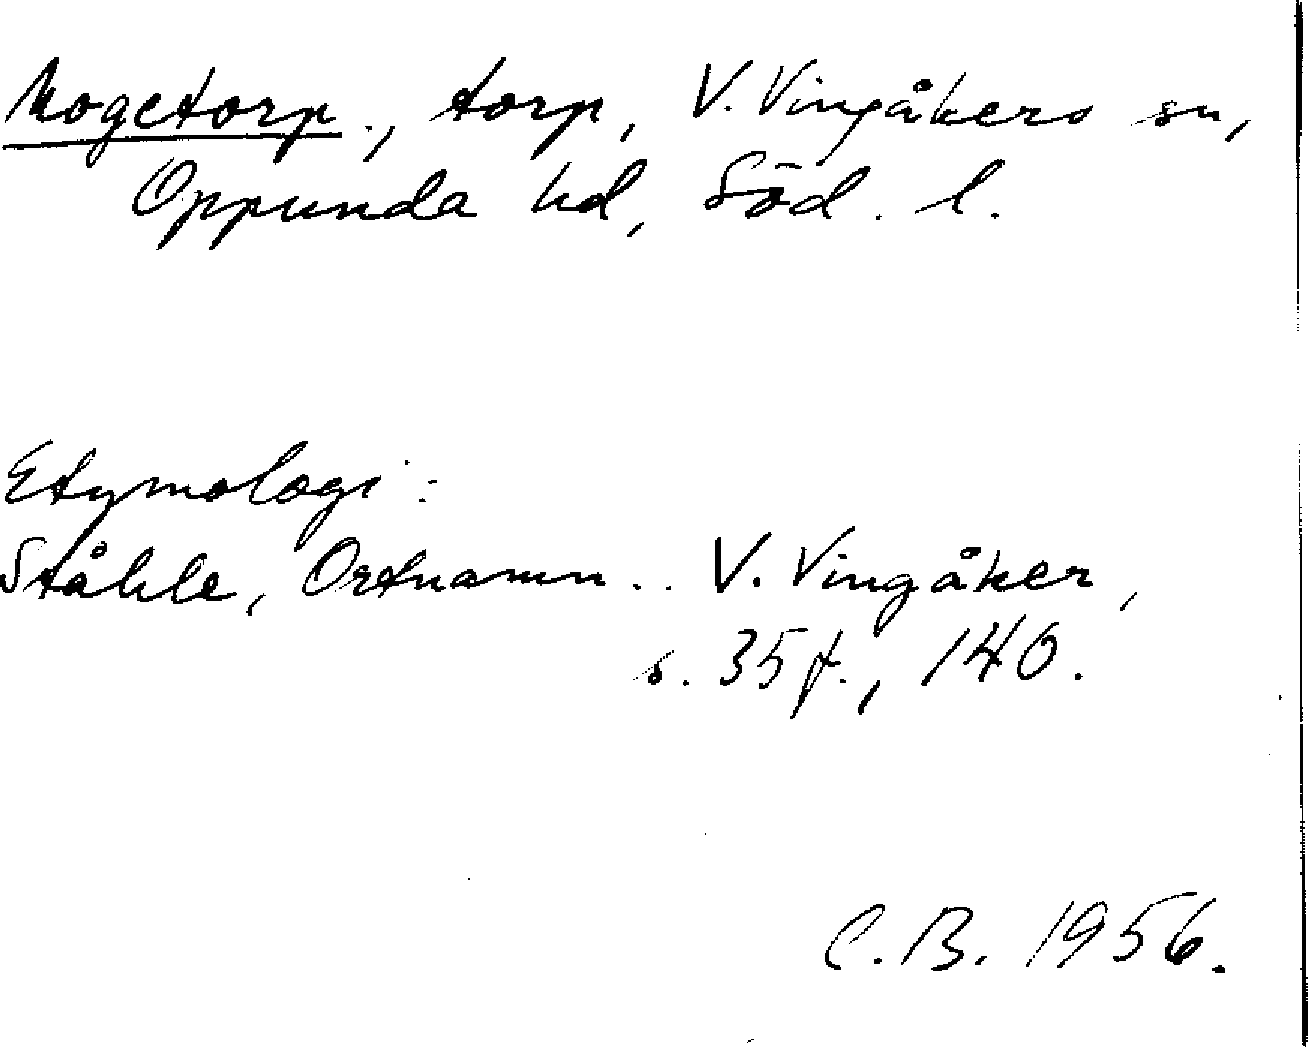 Mogetorp., torp, V. Vingåkers sn,
Oppunda hd, Söd. l.
Etymologi:
Ståhle, Ortnamn.. V. Vingåker,
s. 35 f., 140.
C.B. 1956.